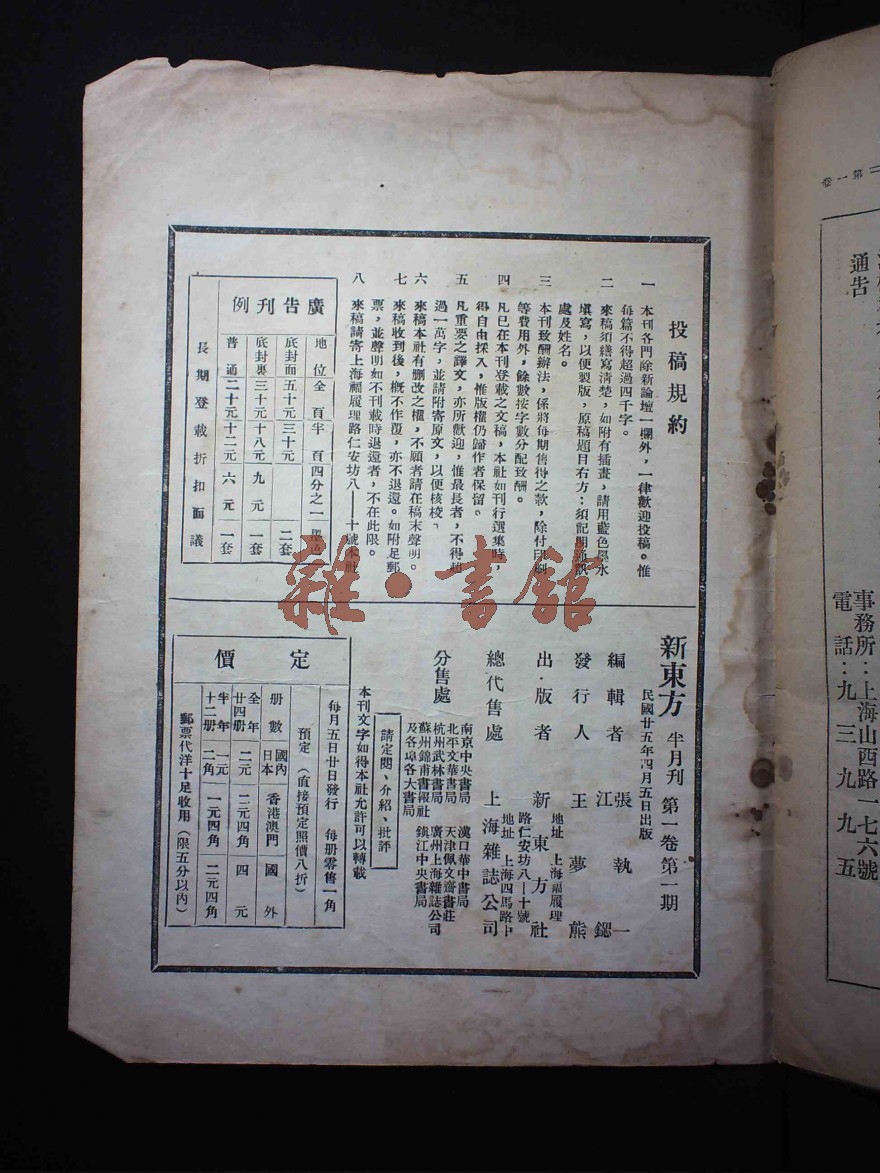 投稿規約
一　本刊各門除新論壇一欄外，一律歡迎投稿。惟
每篇不得超過四千字。
二　來稿須繕寫清楚，如附有插畫，請用藍色墨水
填寫，以便製版，原稿題目右方：須記明通訊
處及姓名。
三　本刊致酬辦法，係將每期售得之款，除付印刷
等費用外，餘數按字數分配致酬。
四　凡已在本刊登載之文稿，本社如刊行選集時，
得自由採入，惟版權仍歸作者保留。
五　凡重要之譯文，亦所歡迎，惟最長者，不得超
過一萬字，並請附寄原文，以便核校。
六　來稿本社有删改之權，不願者請在稿末聲明。
七　來稿收到後，概不作覆，亦不退還。如附足郵
票，並聲明如不刊載時退還者，不在此限。
八　來稿請寄上海福履理路仁安坊八——十號本社
廣告刊例
地位　全百　半百　四分之一　墨色
底封面　五十元　三十元　二套
底封裏　三十元　十八元　九元　一套
普通　二十元　十二元　六元　一套
長期登載折扣面議
新東方　半月刊　第一卷第一期
民國廿五年四月五日出版
編輯者　張執一　江鏐
發行人　王夢熊
出·版者　新東方社
地址　上海福履理
路仁安坊八—十號
總代售處　上海雜誌公司
地址　上海四馬路中
分售處
南京中央書局　漢口華中書局
北平文華書局　天津佩文齋書莊
杭州武林書局　廣州上海雜誌公司
蘇州錦甫書報社　鎮江中央書局
及各埠各大書局
請定閱、介紹、批評
本刊文字如得本社允許可以轉載
定價
每月五日廿日發行　每册零售一角
預定（直接預定照價八折）
册數　國內日本　香港澳門　國外
全年廿四册　二元　二元四角　四元
半年十二册　一元二角　一元四角　二元四角
郵票代洋十足收用（限五分以內）
雜·書館
第一卷
通告
事務所：上海山西路一七六號
電話：九三九九五